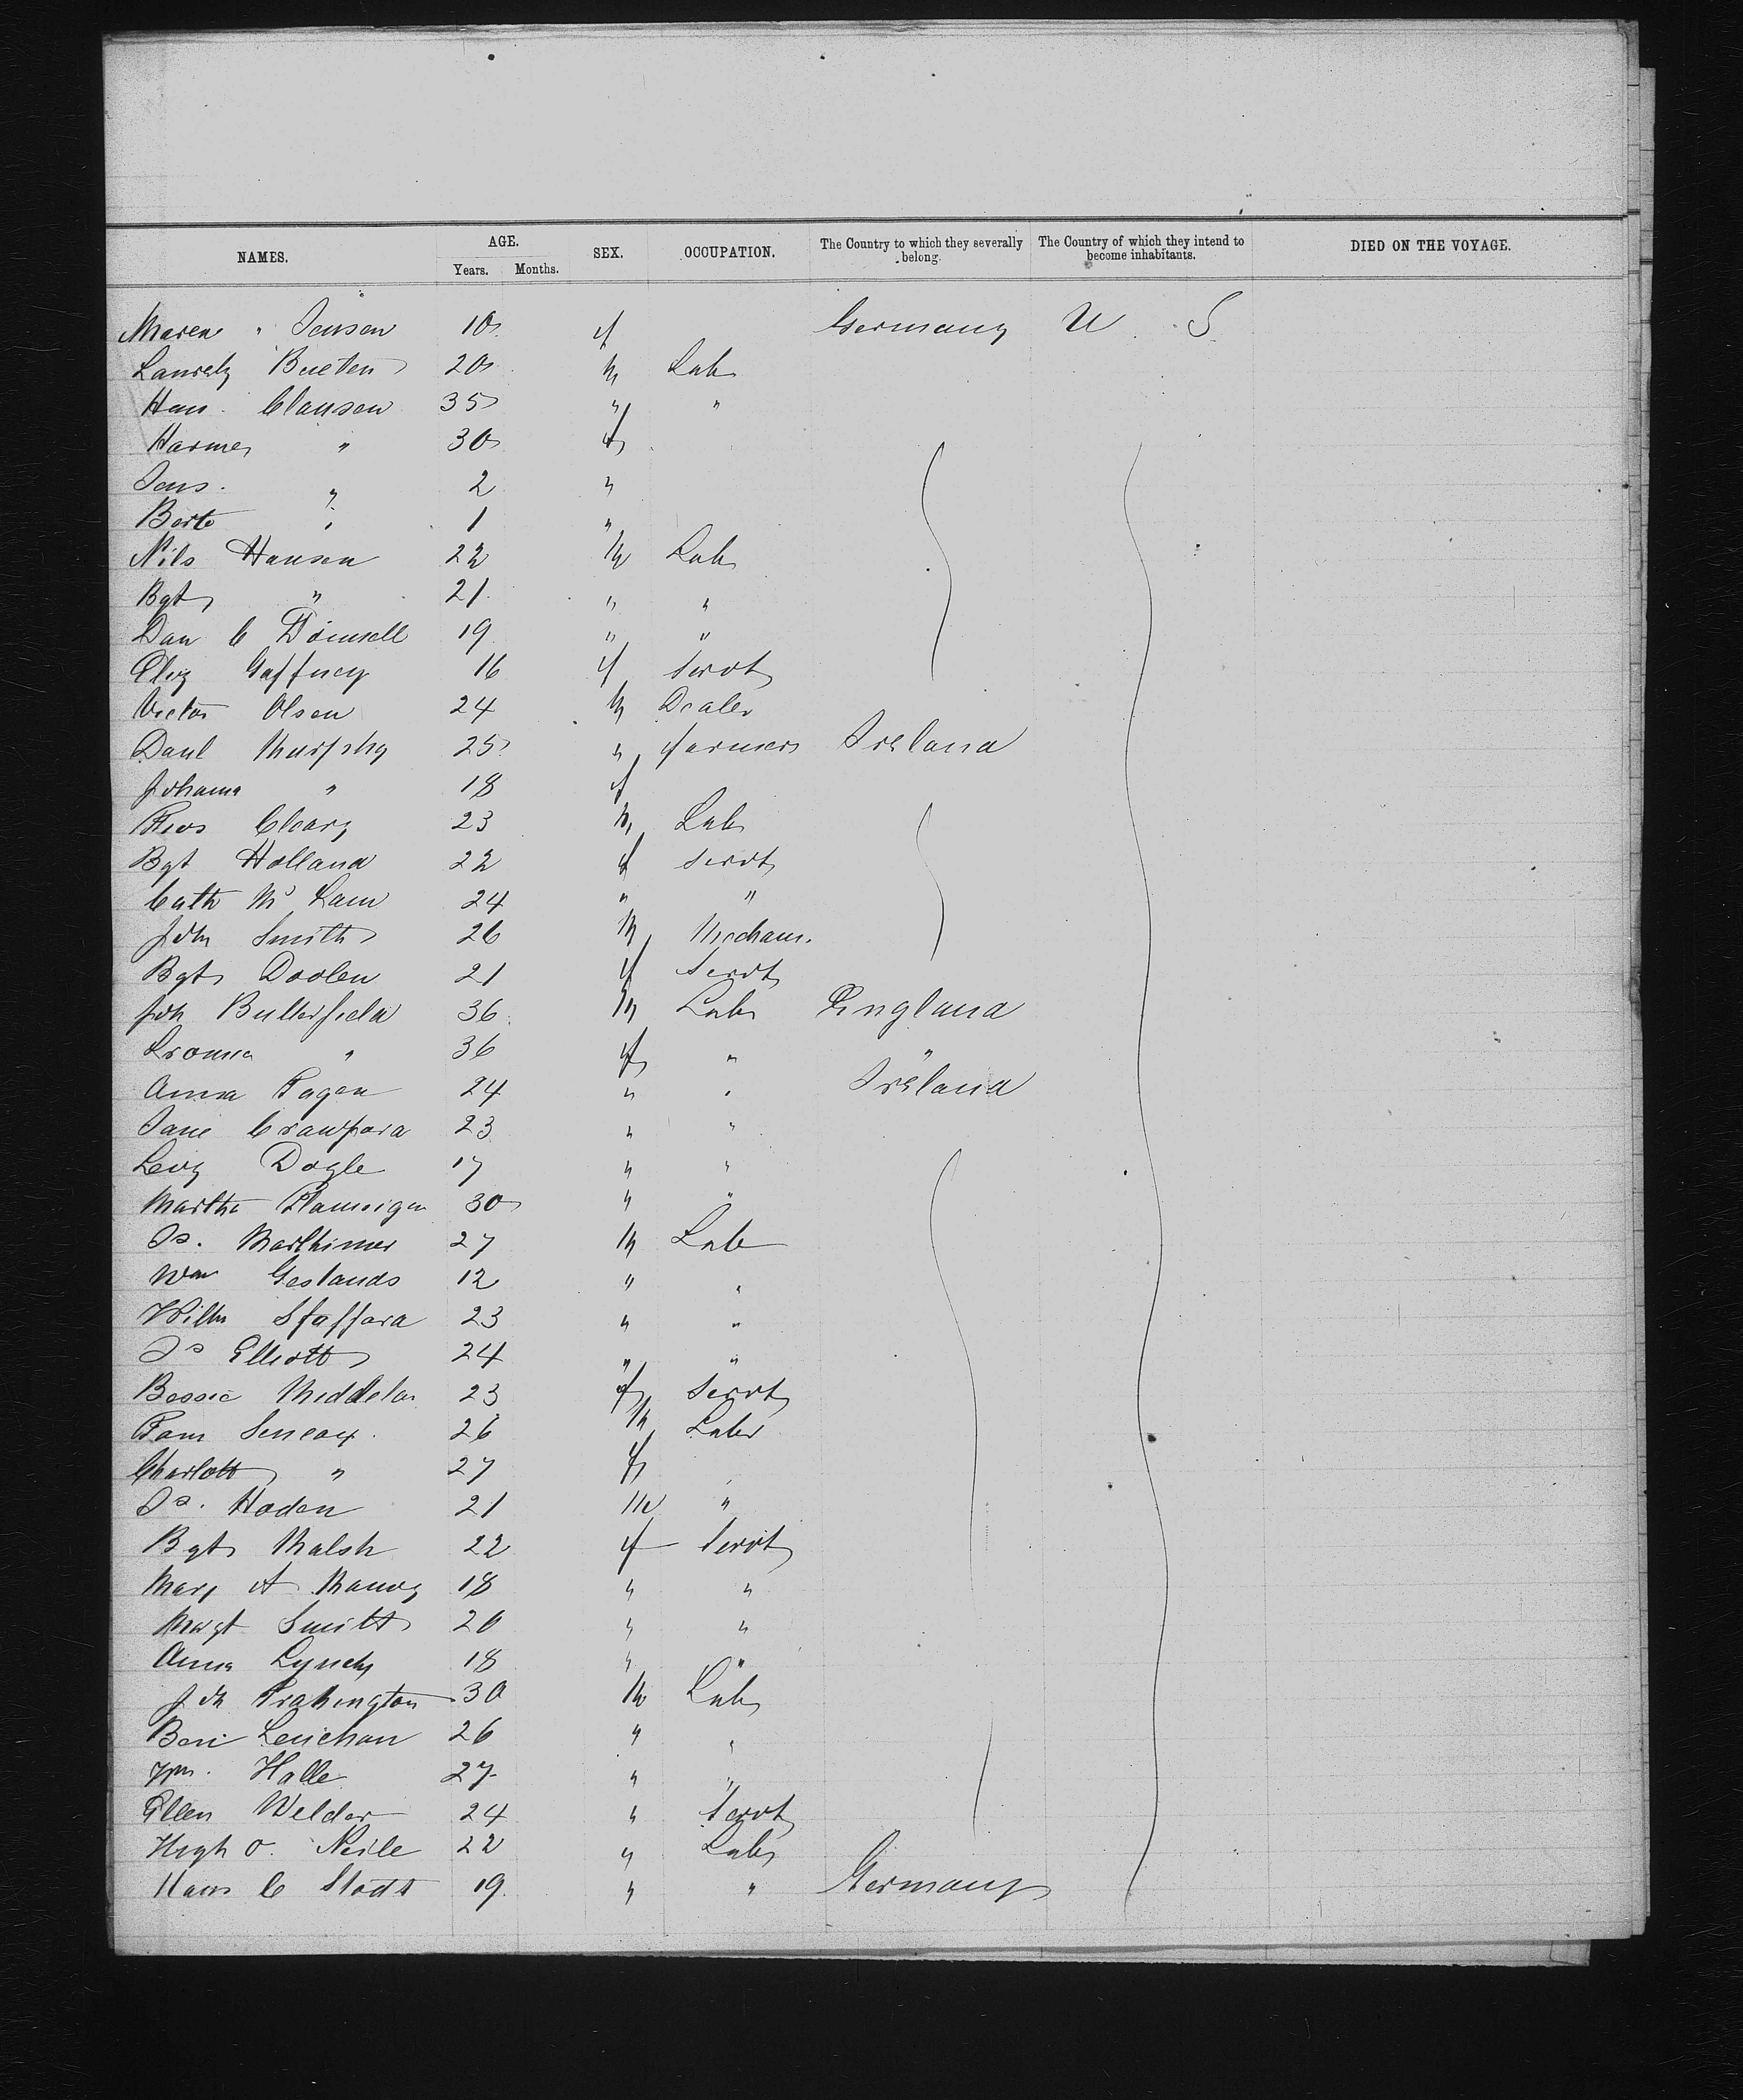 NAMES. AGE. Years. Months. SEX. OCCUPATION. The Country to which they severally belong. The Country of which they intend to become inhabitants. DIED ON THE VOYAGE.
Maren " Jensen 10 f Germany U. S.
20 m Lab
Hans Clausen 35 " "
" 30 f
Jens. " 2 "
" 1 "
Nils Hansen 22 m Lab
Bgt " 21 " "
Dan C 19 " "
Eliz Gaffney 16 f Servt
Victor Olsen 24 m Dealer
Danl Murphy 25 " farmers Ireland
Johanna " 18 f
Thos Cleary 23 m Lab
Bgt Holland 22 f Servt
Cath Mc 24 " "
John Smith 26 m Mechan.
Bgt Doolen 21 f Servt
Joh Butterfield 36 m Lab England
" 36 f " "
Anna Fagen 24 " " Ireland
Jane Crawford 23 " "
Dogle 17 " "
Martha Flannigan 30 " "
Js. 27 m Lab
Wm 12 " "
Willm Stafford 23 " "
Js Elliott 24 " "
Bessie 23 f Servt
26 m Labr
Charlott " 27 f
Js. Hoden 21 m "
Bgt Walsh 22 f Servt
Mary A 18 " "
Margt Smith 20 " "
Anna Lynch 18 " "
Joh 30 m Lab
Lenehan 26 " "
Wm. Halle 27 " "
Ellen Welder 24 " Servt
Hugh O. Neile 22 " Lab
Hans C 19 " " Germany